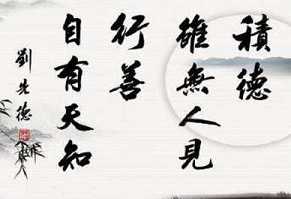 積德
雖無人見
行善
自有天知
劉先德